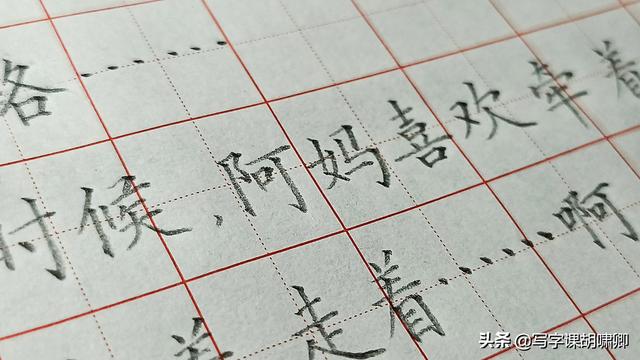 络……
时候，阿妈喜欢牵着
着走着……啊
头条 @写字课胡啸卿